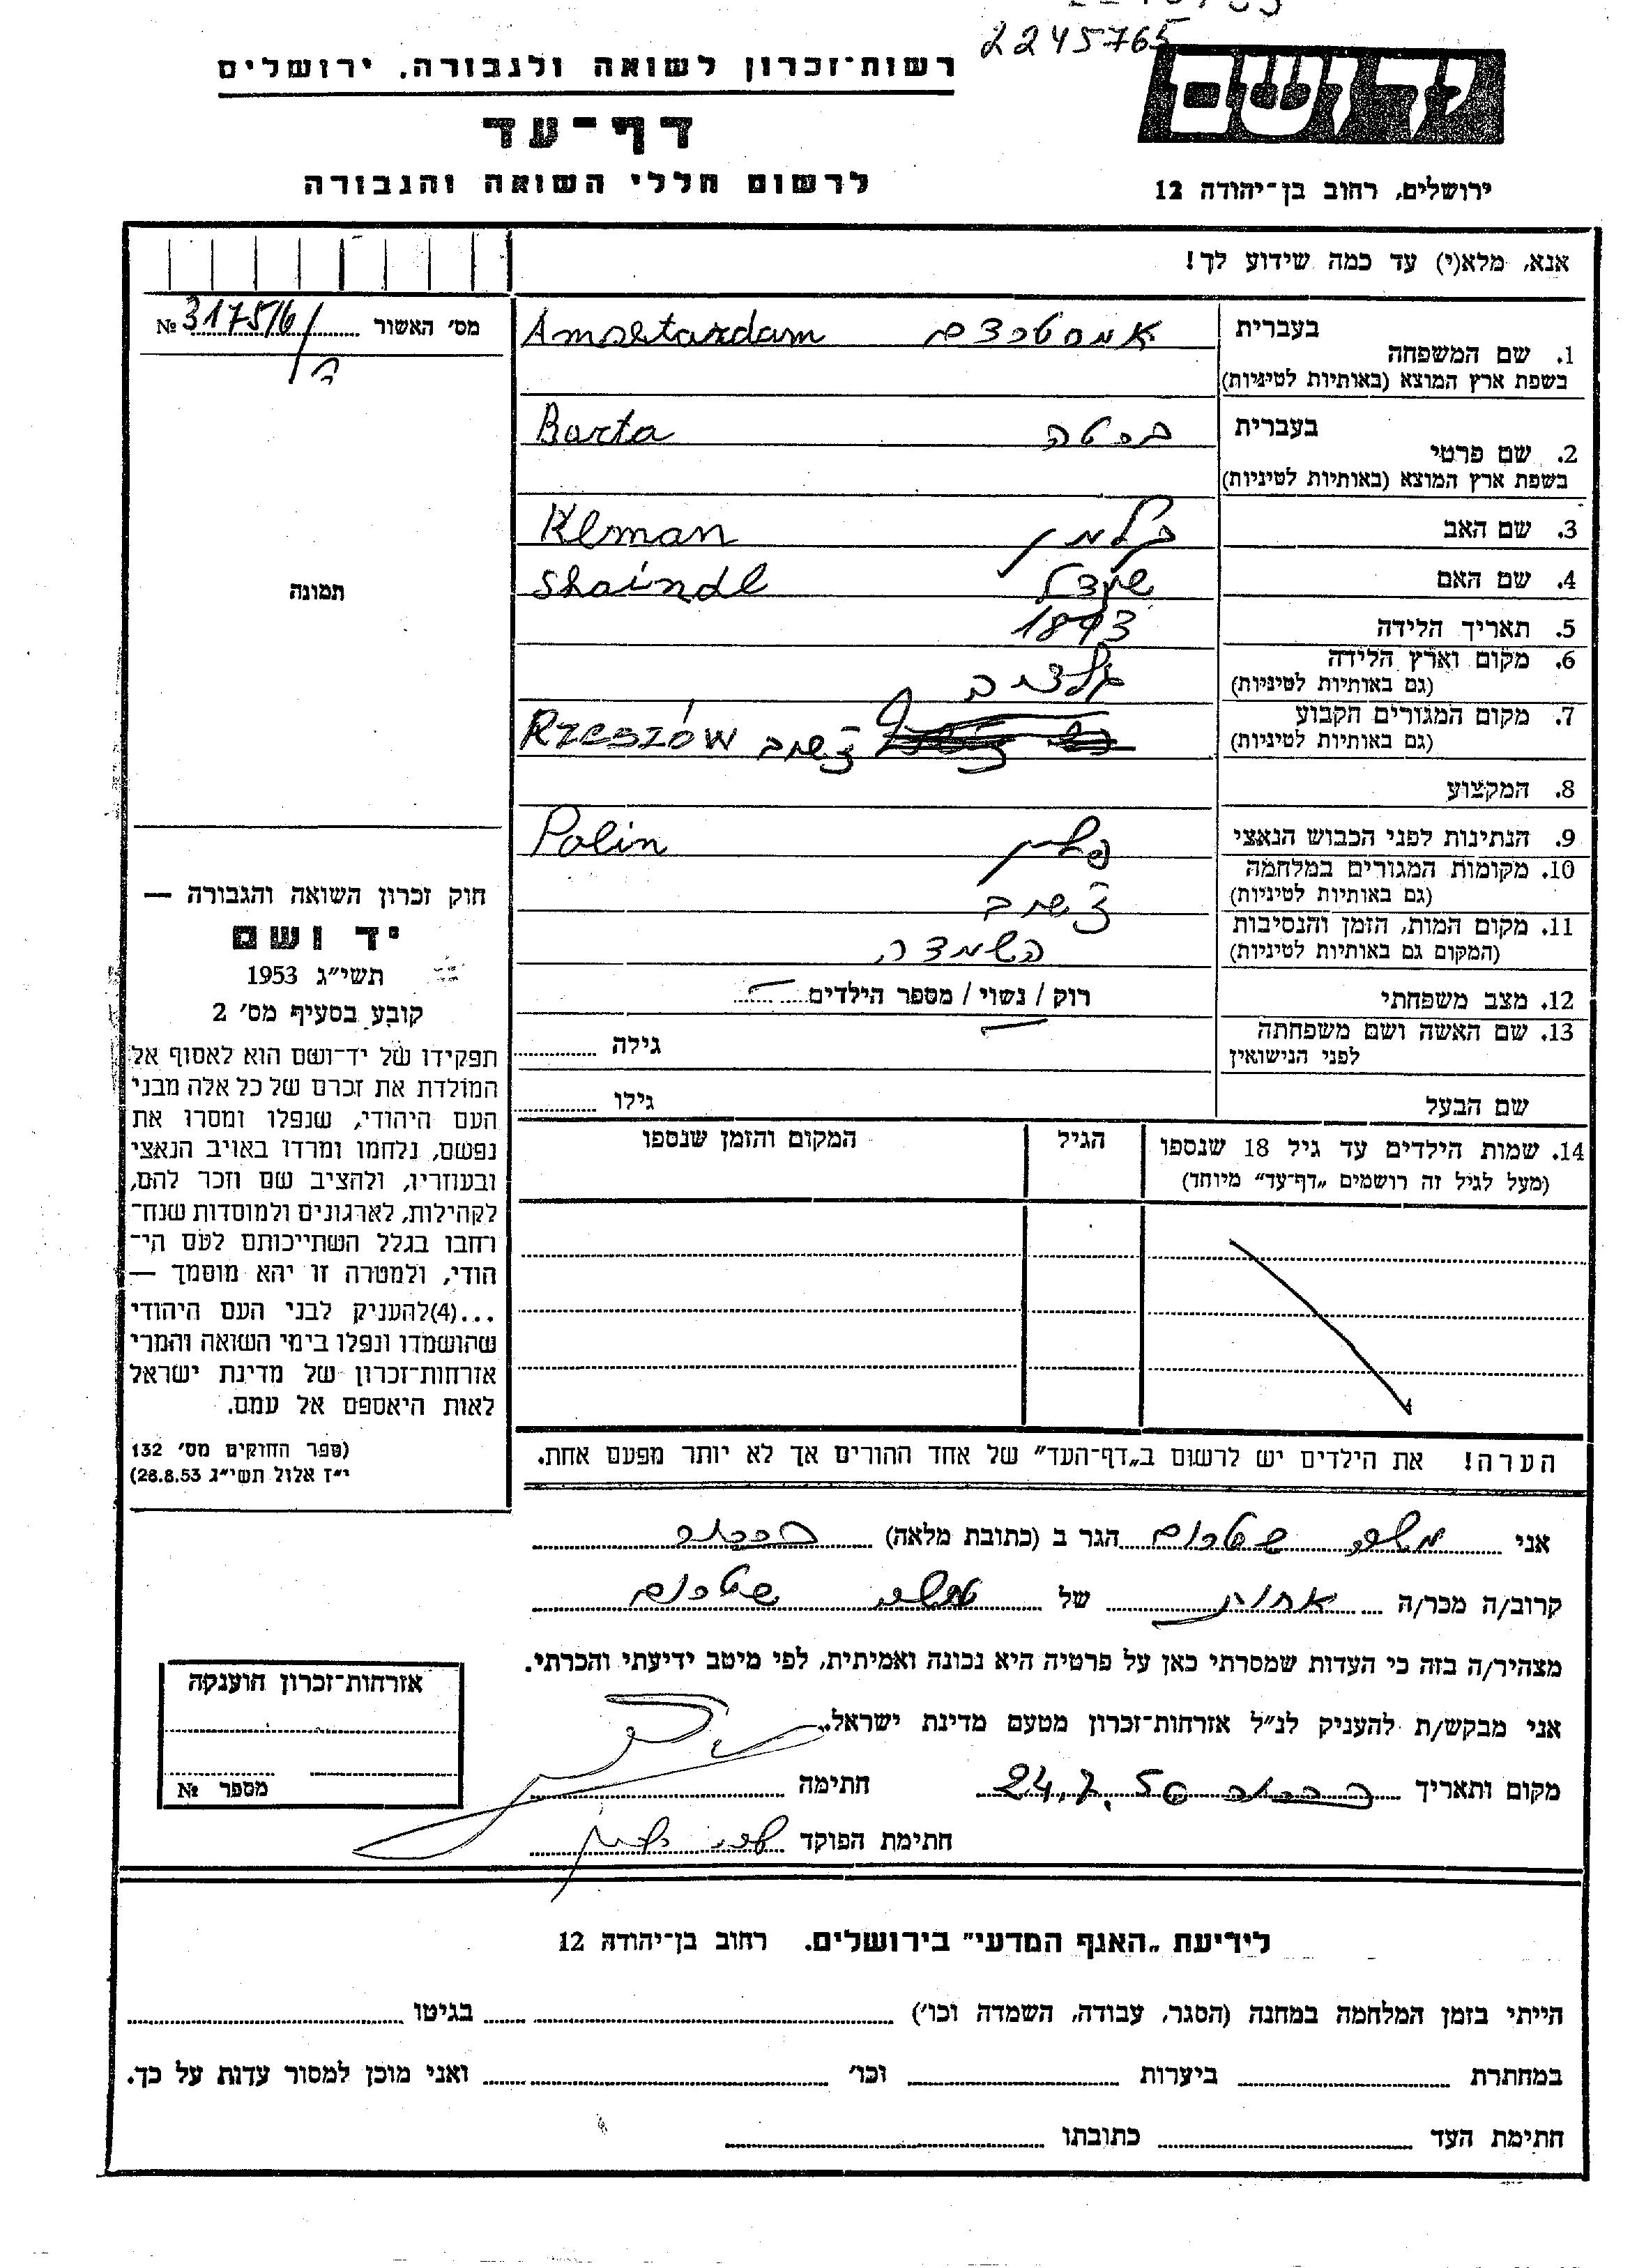 2245765
רשות־זכרון לשואה ולגבורה, ירושלים
דף־עד
לרשום חללי השואה והגבורה
יד ושם
ירושלים, רחוב בן־יהודה 12
אנא, מלא(י) עד כמה שידוע לך!
מס׳ האשור № 317516/
1. שם המשפחה בעברית אמסטרדם Amsetardam
בשפת ארץ המוצא (באותיות לטיניות)
2. שם פרטי בעברית ברטה Barta
בשפת ארץ המוצא (באותיות לטיניות)
3. שם האב קלמן Klman
4. שם האם שינדל Shaindl
5. תאריך הלידה 1893
6. מקום וארץ הלידה
(גם באותיות לטיניות)
7. מקום המגורים הקבוע ז׳שוב Rzeszów
(גם באותיות לטיניות)
8. המקצוע
9. הנתינות לפני הכבוש הנאצי פולין Polin
10. מקומות המגורים במלחמה ז׳שוב
(גם באותיות לטיניות)
11. מקום המות, הזמן והנסיבות השמדה
(המקום גם באותיות לטיניות)
12. מצב משפחתי רוק / נשוי / מספר הילדים
13. שם האשה ושם משפחתה גילה
לפני הנישואין
שם הבעל גילו
14. שמות הילדים עד גיל 18 שנספו הגיל המקום והזמן שנספו
(מעל לגיל זה רושמים „דף־עד״ מיוחד)
הערה! את הילדים יש לרשום ב„דף־העד״ של אחד ההורים אך לא יותר מפעם אחת.
תמונה
חוק זכרון השואה והגבורה —
יד ושם
תשי״ג 1953
קובע בסעיף מס׳ 2
תפקידו של יד־ושם הוא לאסוף אל
המולדת את זכרם של כל אלה מבני
העם היהודי, שנפלו ומסרו את
נפשם, נלחמו ומרדו באויב הנאצי
ובעוזריו, ולהציב שם וזכר להם,
לקהילות, לארגונים ולמוסדות שנח־
רחבו בגלל השתייכותם לעם הי־
הודי, ולמטרה זו יהא מוסמך —
...(4)להעניק לבני העם היהודי
שהושמדו ונפלו בימי השואה והמרי
אזרחות־זכרון של מדינת ישראל
לאות היאספם אל עמם.
(ספר החוקים מס׳ 132
י״ז אלול תשי״ג 28.8.53)
אני שטרום הגר ב (כתובת מלאה)
קרוב/ה מכר/ה אחות של שטרום
מצהיר/ה בזה כי העדות שמסרתי כאן על פרטיה היא נכונה ואמיתית, לפי מיטב ידיעתי והכרתי.
אני מבקש/ת להעניק לנ״ל אזרחות־זכרון מטעם מדינת ישראל.
מקום ותאריך 24.7.56 חתימה
חתימת הפוקד
אזרחות־זכרון הוענקה
מספר №
לידיעת „האגף המדעי״ בירושלים. רחוב בן־יהודה 12
הייתי בזמן המלחמה במחנה (הסגר, עבודה, השמדה וכו׳) בגיטו
במחתרת ביערות וכו׳ ואני מוכן למסור עדות על כך.
חתימת העד כתובתו